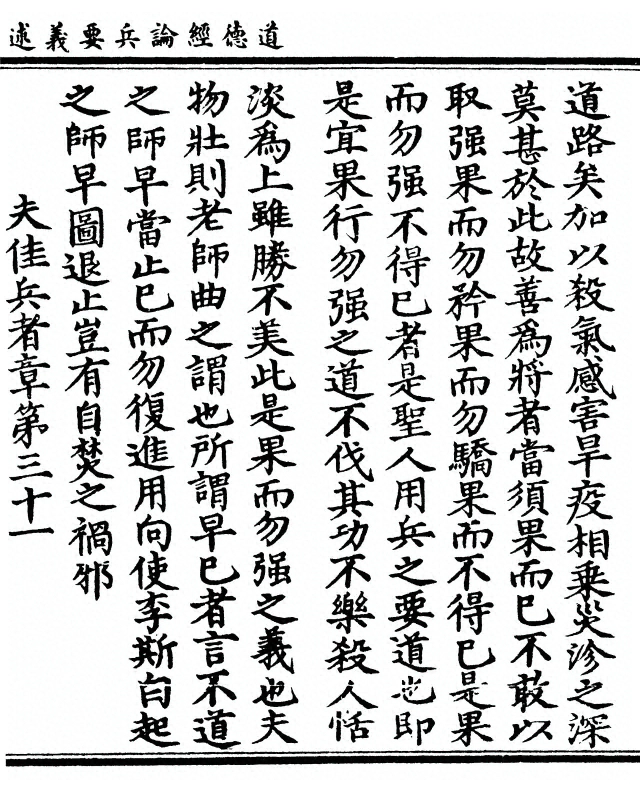 道德經論兵要義述
道路矣加以殺氣感害旱疫相乘災沴之深
莫甚於此故善為將者當須果而已不敢以
取强果而勿矜果而勿驕果而不得已是果
而勿强不得已者是聖人用兵之要道也即
是宜果行勿强之道不伐其功不樂殺人恬
淡為上雖勝不美此是果而勿强之義也夫
物壯則老師曲之謂也所謂早已者言不道
之師早當止已而勿復進用向使李斯白起
之師早圖退止豈有自焚之禍邪
夫佳兵者章第三十一